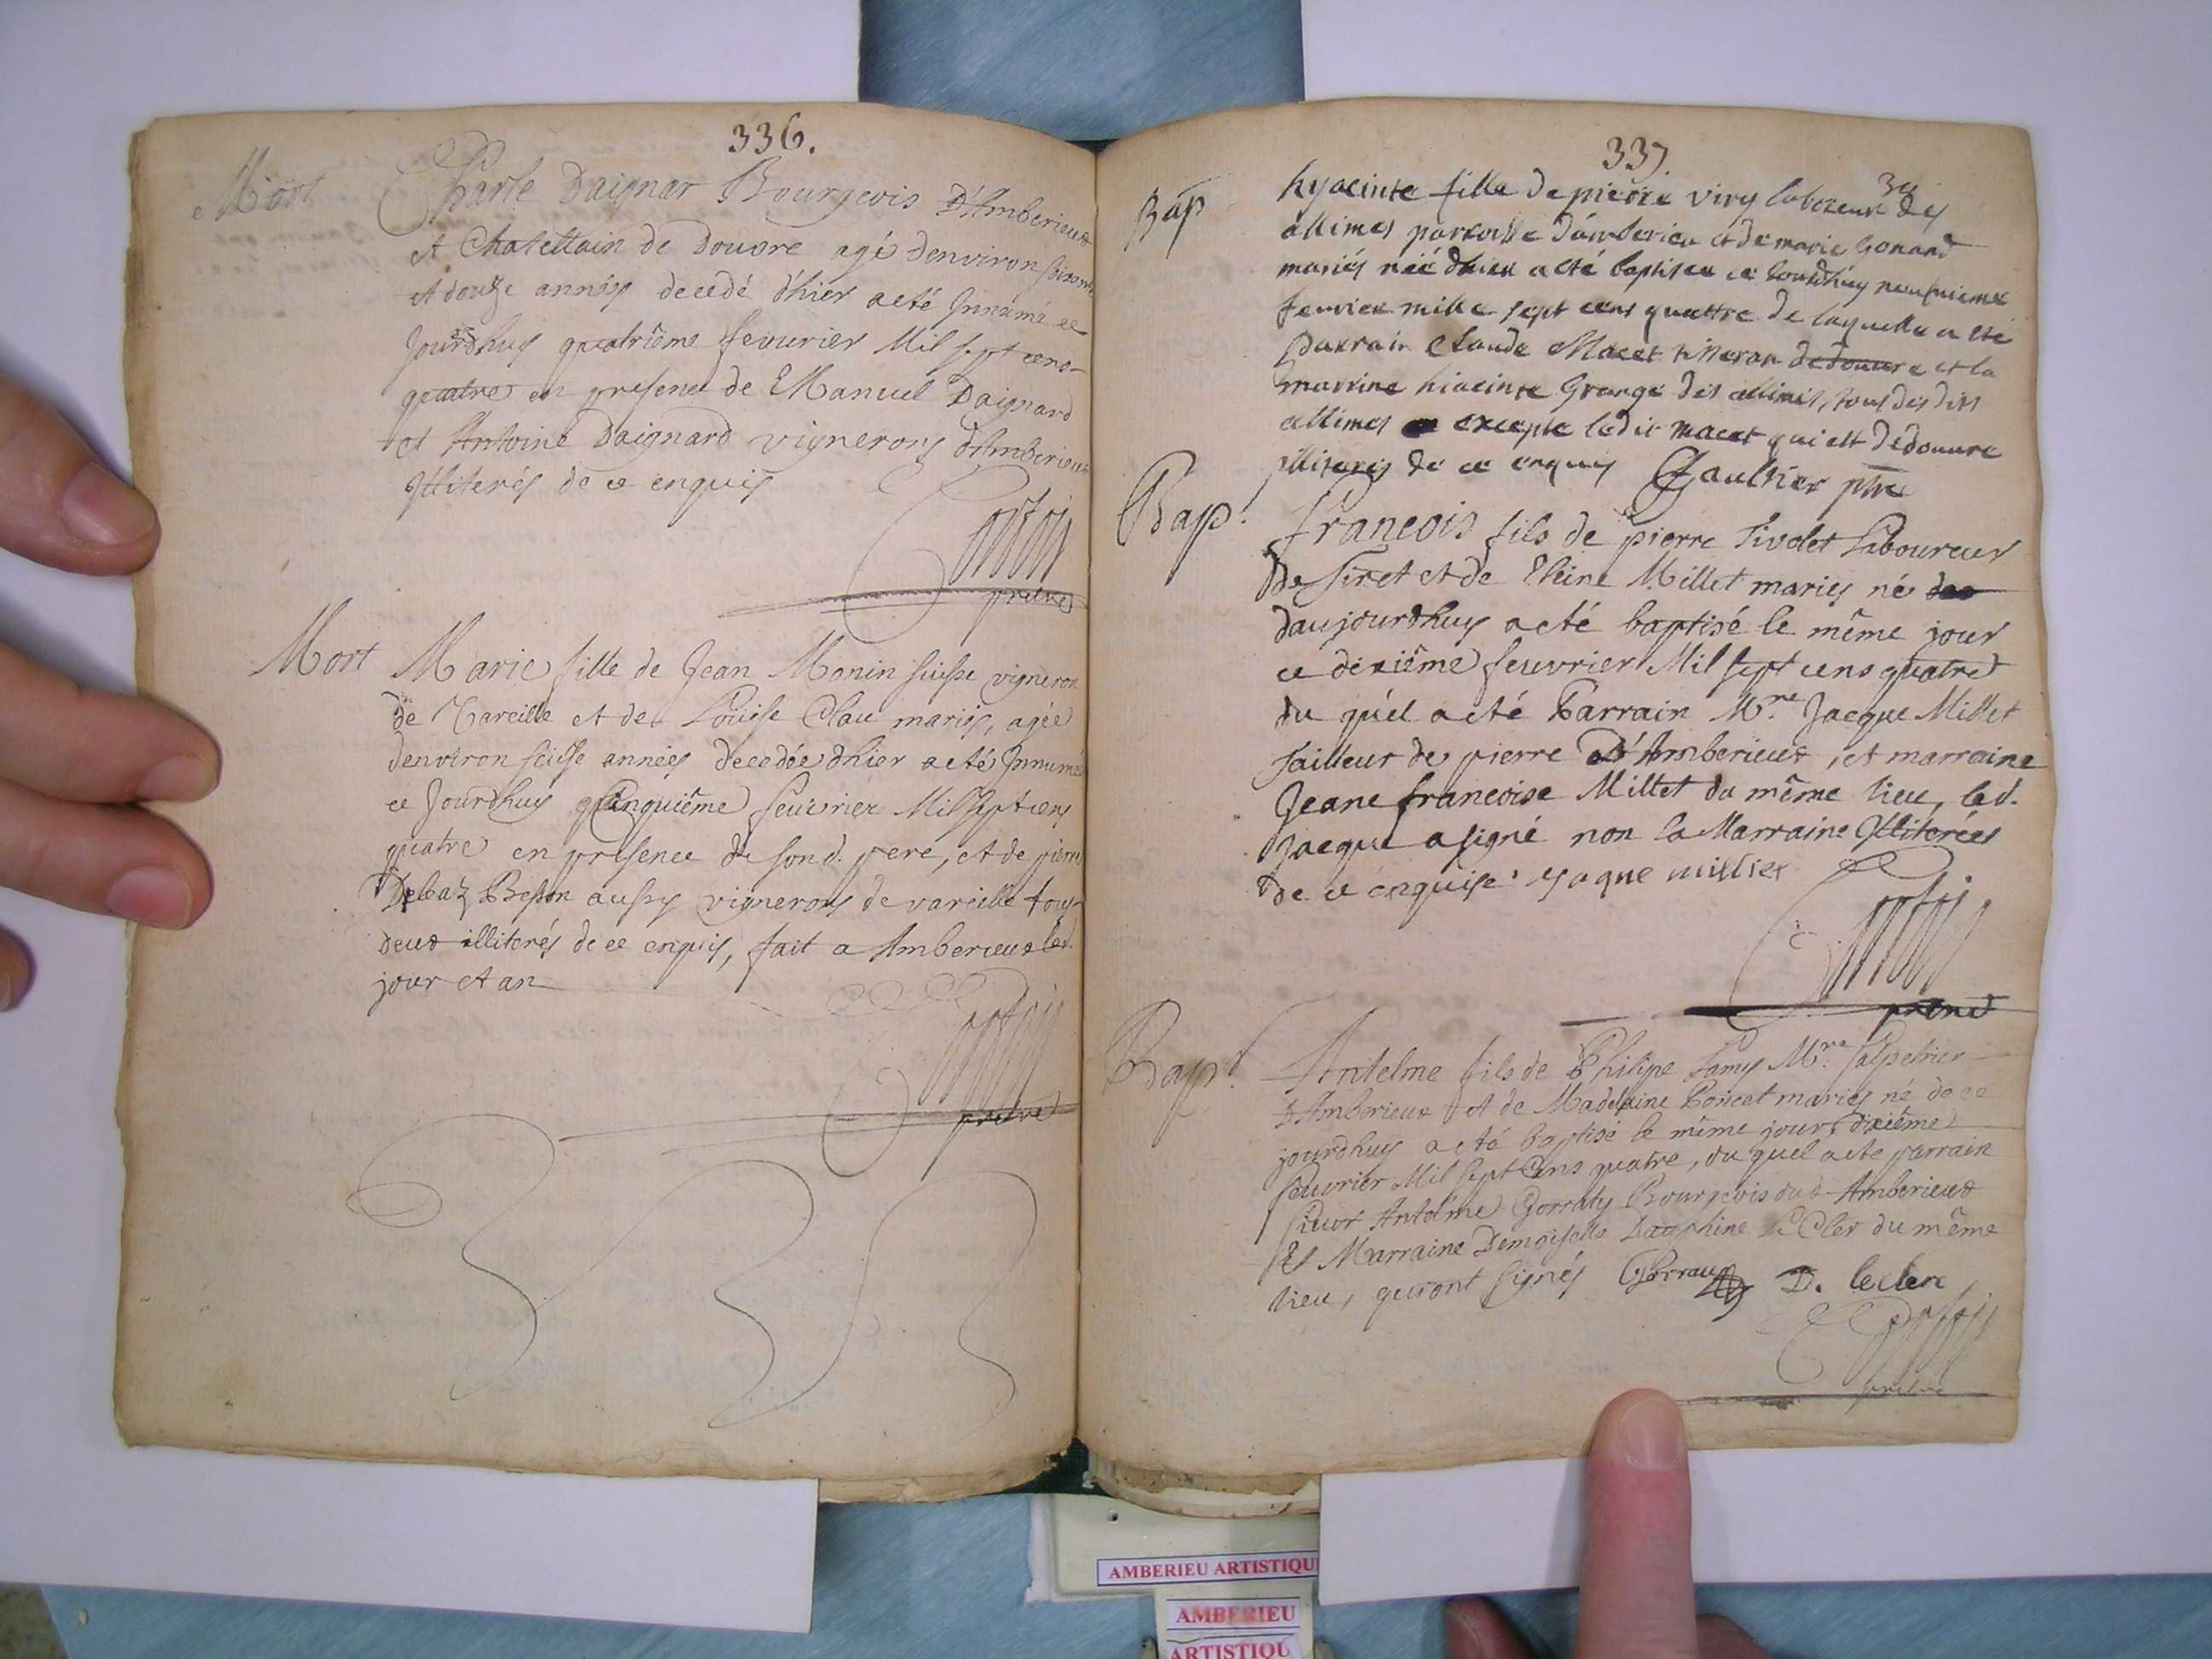 336.
Mort
Charle Daignar Bourgeois D'Amberieux
et Chatellain de Douvre agé denviron
et douze années decedé d'hier a eté Jnnumé ce
Jourdhuy quatriême feuurier Mil sept cens
quatre en presence de EManuel Daignard
et Antoine Daignard vignerons d'Amberieux
Jlliterés de ce enquis
prêtre
Mort
Marie fille de Jean Monin suisse vigneron
de Vareille et de Loüise Clau mariés, agée
denviron seize années decedée d'hier a eté Jnnumé
ce Jourdhuy cinquiême feuurier Mil sept cens
quatre en presence de son d. pere, et de pierre
Debaz Besson aussy vignerons de vareille tous
deux illiterés de ce enquis, fait a Amberieux led.
jour et an
prêtre
337.
Bap
hyacinte fille de pierre viry laboreur des
allimes parroisse d'amberieu et de marie Gonand
mariés néé dhier a eté baptisee ce jourdhuy neufuieme
feuvier mille sept cens quattre de laquelle a ete
parrain Claude Macet tisseran de douure et la
marrine hiacinte Grange des allimes, tous des dits
allimes excepte ledit macet qui est de douure
illiterés de ce enquis Gaultier ptre
Bap.t
francois fils de pierre Tivolet Laboureur
De Tiret et de Eleine Millet mariés né
daujourdhuy a eté baptisé le même jour
ce dixiême feuvrier Mil sept cens quatre
du quél a eté Parrain M.re Jacque Millet
tailleur de pierre D'Amberieux, et marraine
Jeane francoise Millet du même lieu, led.
Jacque a signé non la Marraine Jlliterées
de ce enquise. yaque millier
prêtre
Bap.t
Antelme fils de Philipe Lamy M.re salpetrier
D'Amberieux et de Madelaine Poncet mariés né de ce
jourdhuy a eté baptisé le même jour dixiême
feuvrier Mil sept Cens quatre, du quel a ete parrain
sieur Antelme Gorraty Bourgeois dud Amberieux
Et Marraine Demoiselle Dauphine le Cler du même
lieu, qui ont signés Gorraty D. leclerc
prêtre
AMBERIEU ARTISTIQU
AMBERIEU
ARTISTIQU